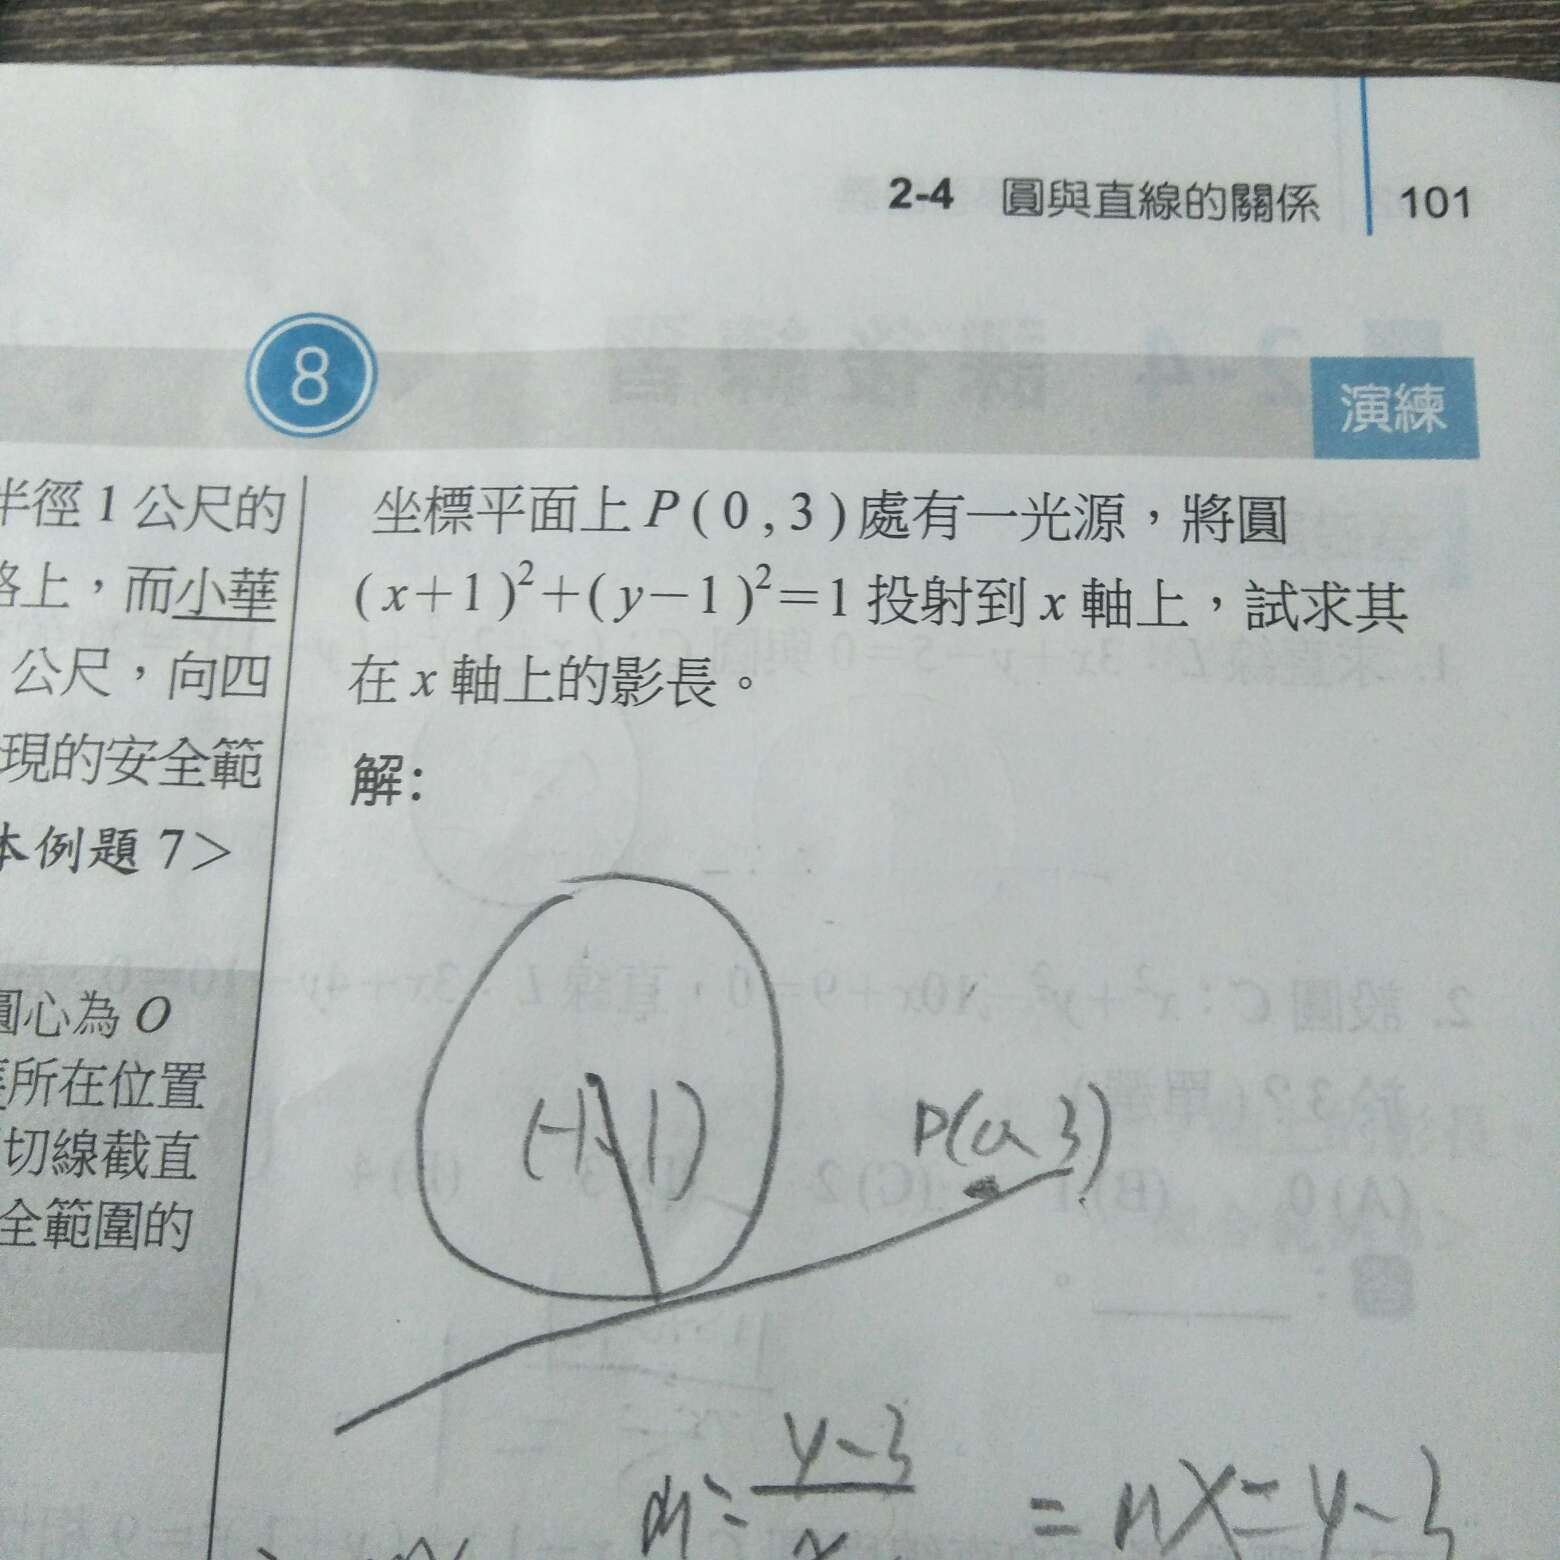 2-4 圓與直線的關係 101
8
演練
半徑 1 公尺的
路上，而小華
公尺，向四
現的安全範
本例題 7>
圓心為 O
所在位置
切線截直
全範圍的
坐標平面上 P(0,3)處有一光源，將圓
(x+1)²+(y−1)²=1 投射到 x 軸上，試求其
在 x 軸上的影長。
解:
(-1,1)
P(0,3)
m = y-3
= mx = y-3